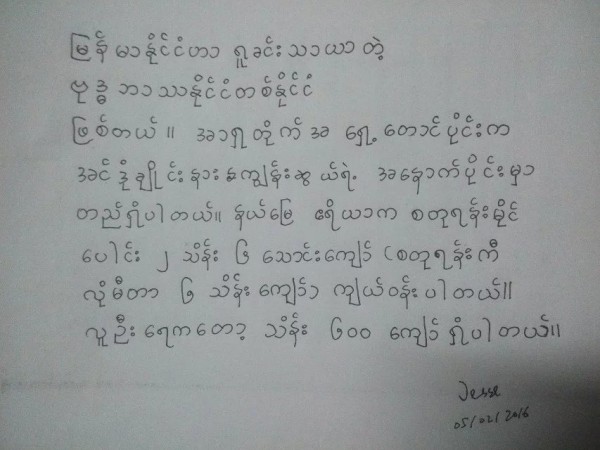 မြန်မာနိုင်ငံဟာ ရှုခင်းသာယာတဲ့
ဗုဒ္ဓဘာသာနိုင်ငံတစ်နိုင်ငံ
ဖြစ်တယ်။ အာရှတိုက်အရှေ့တောင်ပိုင်းက
အင်ဒိုချိုင်းနားကျွန်းဆွယ်ရဲ့ အနောက်ပိုင်းမှာ
တည်ရှိပါတယ်။ နယ်မြေ ဧရိယာက စတုရန်းမိုင်
ပေါင်း ၂ သိန်း ၆ သောင်းကျော် (စတုရန်းကီ
လိုမီတာ ၆ သိန်းကျော်) ကျယ်ဝန်းပါတယ်။
လူဦးရေကတော့ သိန်း ၆၀၀ ကျော်ရှိပါတယ်။
Jesse
05/02/2016